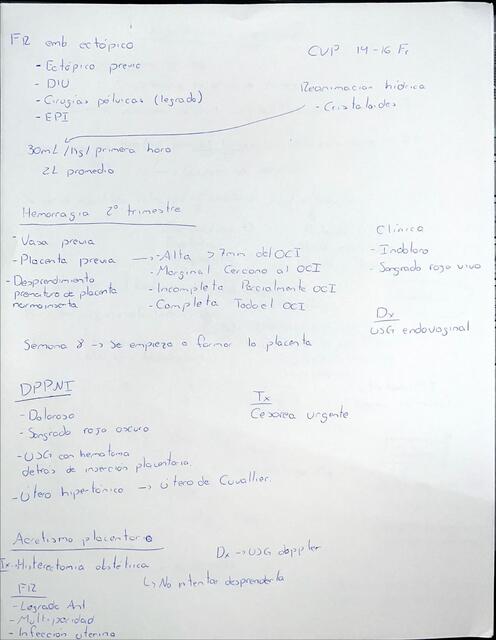 FR emb ectópico
- Ectópico previo
- DIU
- Cirugías pélvicas (legrado)
- EPI
CVP 14-16 Fr
Reanimacion hídrica
- Cristaloides
30mL/Kg/primera hora
2L promedio
Hemorragia 2° trimestre
- Vasa previa
- Placenta previa → - Alta >7mm del OCI
- Marginal Cercano al OCI
- Incompleta Parcialmente OCI
- Completa Todo el OCI
- Desprendimiento
prematuro de placenta
normoinserta
Clínica
- Indoloro
- Sangrado rojo vivo
Dx
USG endovaginal
Semana 8 → Se empieza a formar la placenta
DPPNI
- Doloroso
- Sangrado rojo oscuro
- USG con hematoma
detras de insercion placentaria.
- Útero hipertónico → Útero de Cuvallier.
Tx
Cesarea urgente
Acretismo placentario
Tx → Histerectomia obstétrica
↳ No intentar desprenderla
Dx → USG doppler
FR
- Legrado Ant
- Multiparidad
- Infeccion uterina